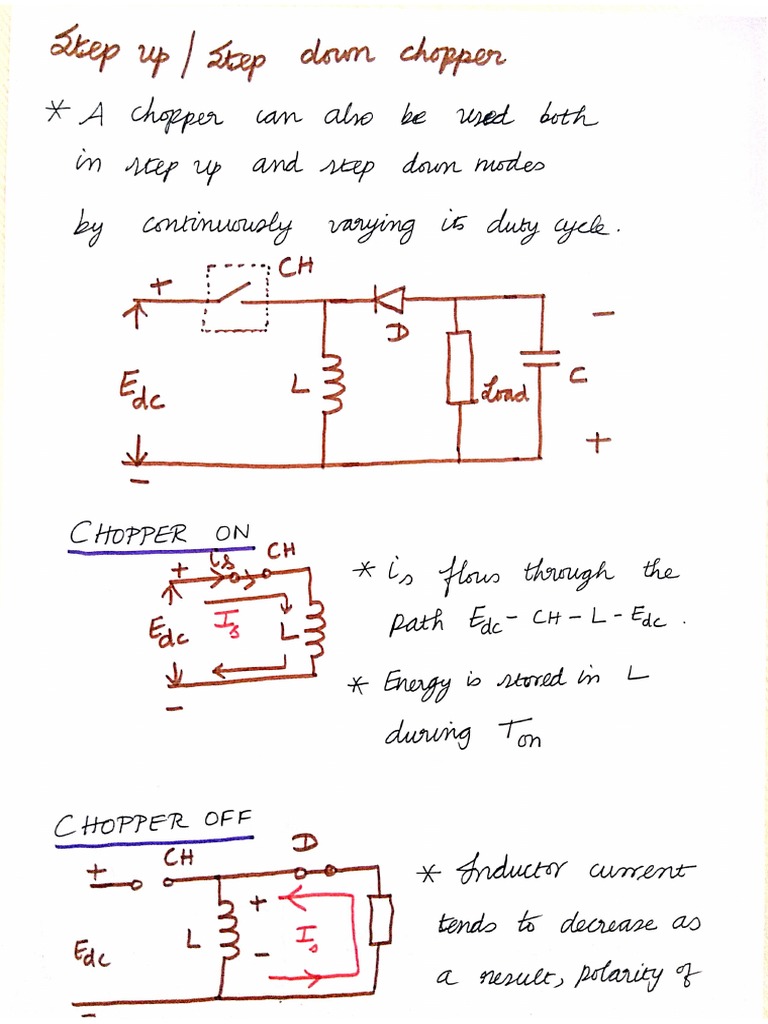 Step up / Step down chopper
* A chopper can also be used both
in step up and step down modes
by continuously varying its duty cycle.
CH
+
D
-
Edc
L
Load
C
+
-
CHOPPER ON
is CH
+
Edc
Is
L
-
* is flows through the
path Edc - CH - L - Edc.
* Energy is stored in L
during Ton
CHOPPER OFF
CH
D
+
+
L
Is
Edc
-
-
* Inductor current
tends to decrease as
a result, polarity of